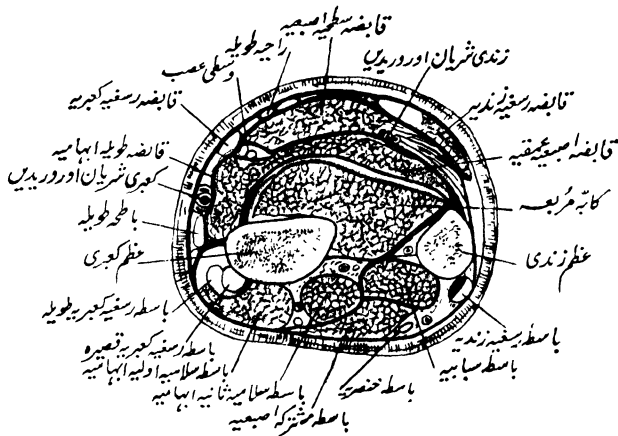 قابضہ سطحیہ اصبعیہ
راحیہ طویلہ
وسطی عصب
قابضہ رسغیہ کعبریہ
قابضہ طویلہ ابہامیہ
کعبری شریان اور وریدیں
باطحہ طویلہ
عظم کعبری
باسطہ رسغیہ کعبریہ طویلہ
باسطہ رسغیہ کعبریہ قصیرہ
باسطہ سلامیہ اولیہ ابہامیہ
باسطہ سلامیہ ثانیہ ابہامیہ
باسطہ مشترکہ اصبعیہ
باسطہ خنصریہ
باسطہ سبابیہ
باسطہ رسغیہ زندیہ
عظم زندی
کابہ مربعہ
قابضہ اصبعیہ عمیقیہ
قابضہ رسغیہ زندیہ
زندی شریان اور وریدیں